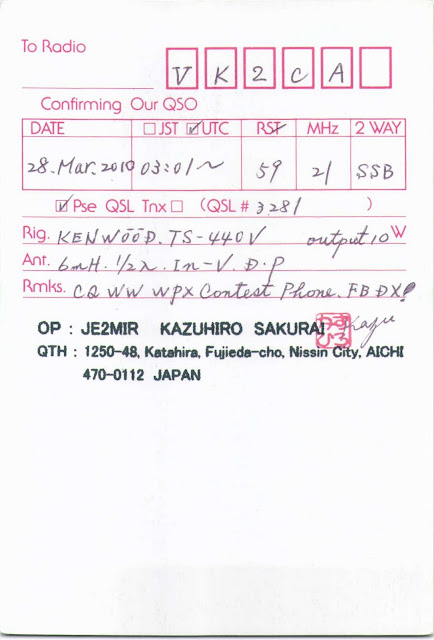 To Radio VK2CA
Confirming Our QSO
DATE ☐ JST ☑ UTC RST MHz 2 WAY
28.Mar.2010 03:01~ 59 21 SSB
☑ Pse QSL Tnx ☐ (QSL # 3281 )
Rig. KENWOOD. TS-440V output 10 W
Ant. 6mH. 1/2λ. In-V. D.P
Rmks. CQ WW WPX Contest Phone. FB DX!
OP : JE2MIR KAZUHIRO SAKURAI かずひろ Kazu
QTH : 1250-48, Katahira, Fujieda-cho, Nissin City, AICHI
470-0112 JAPAN